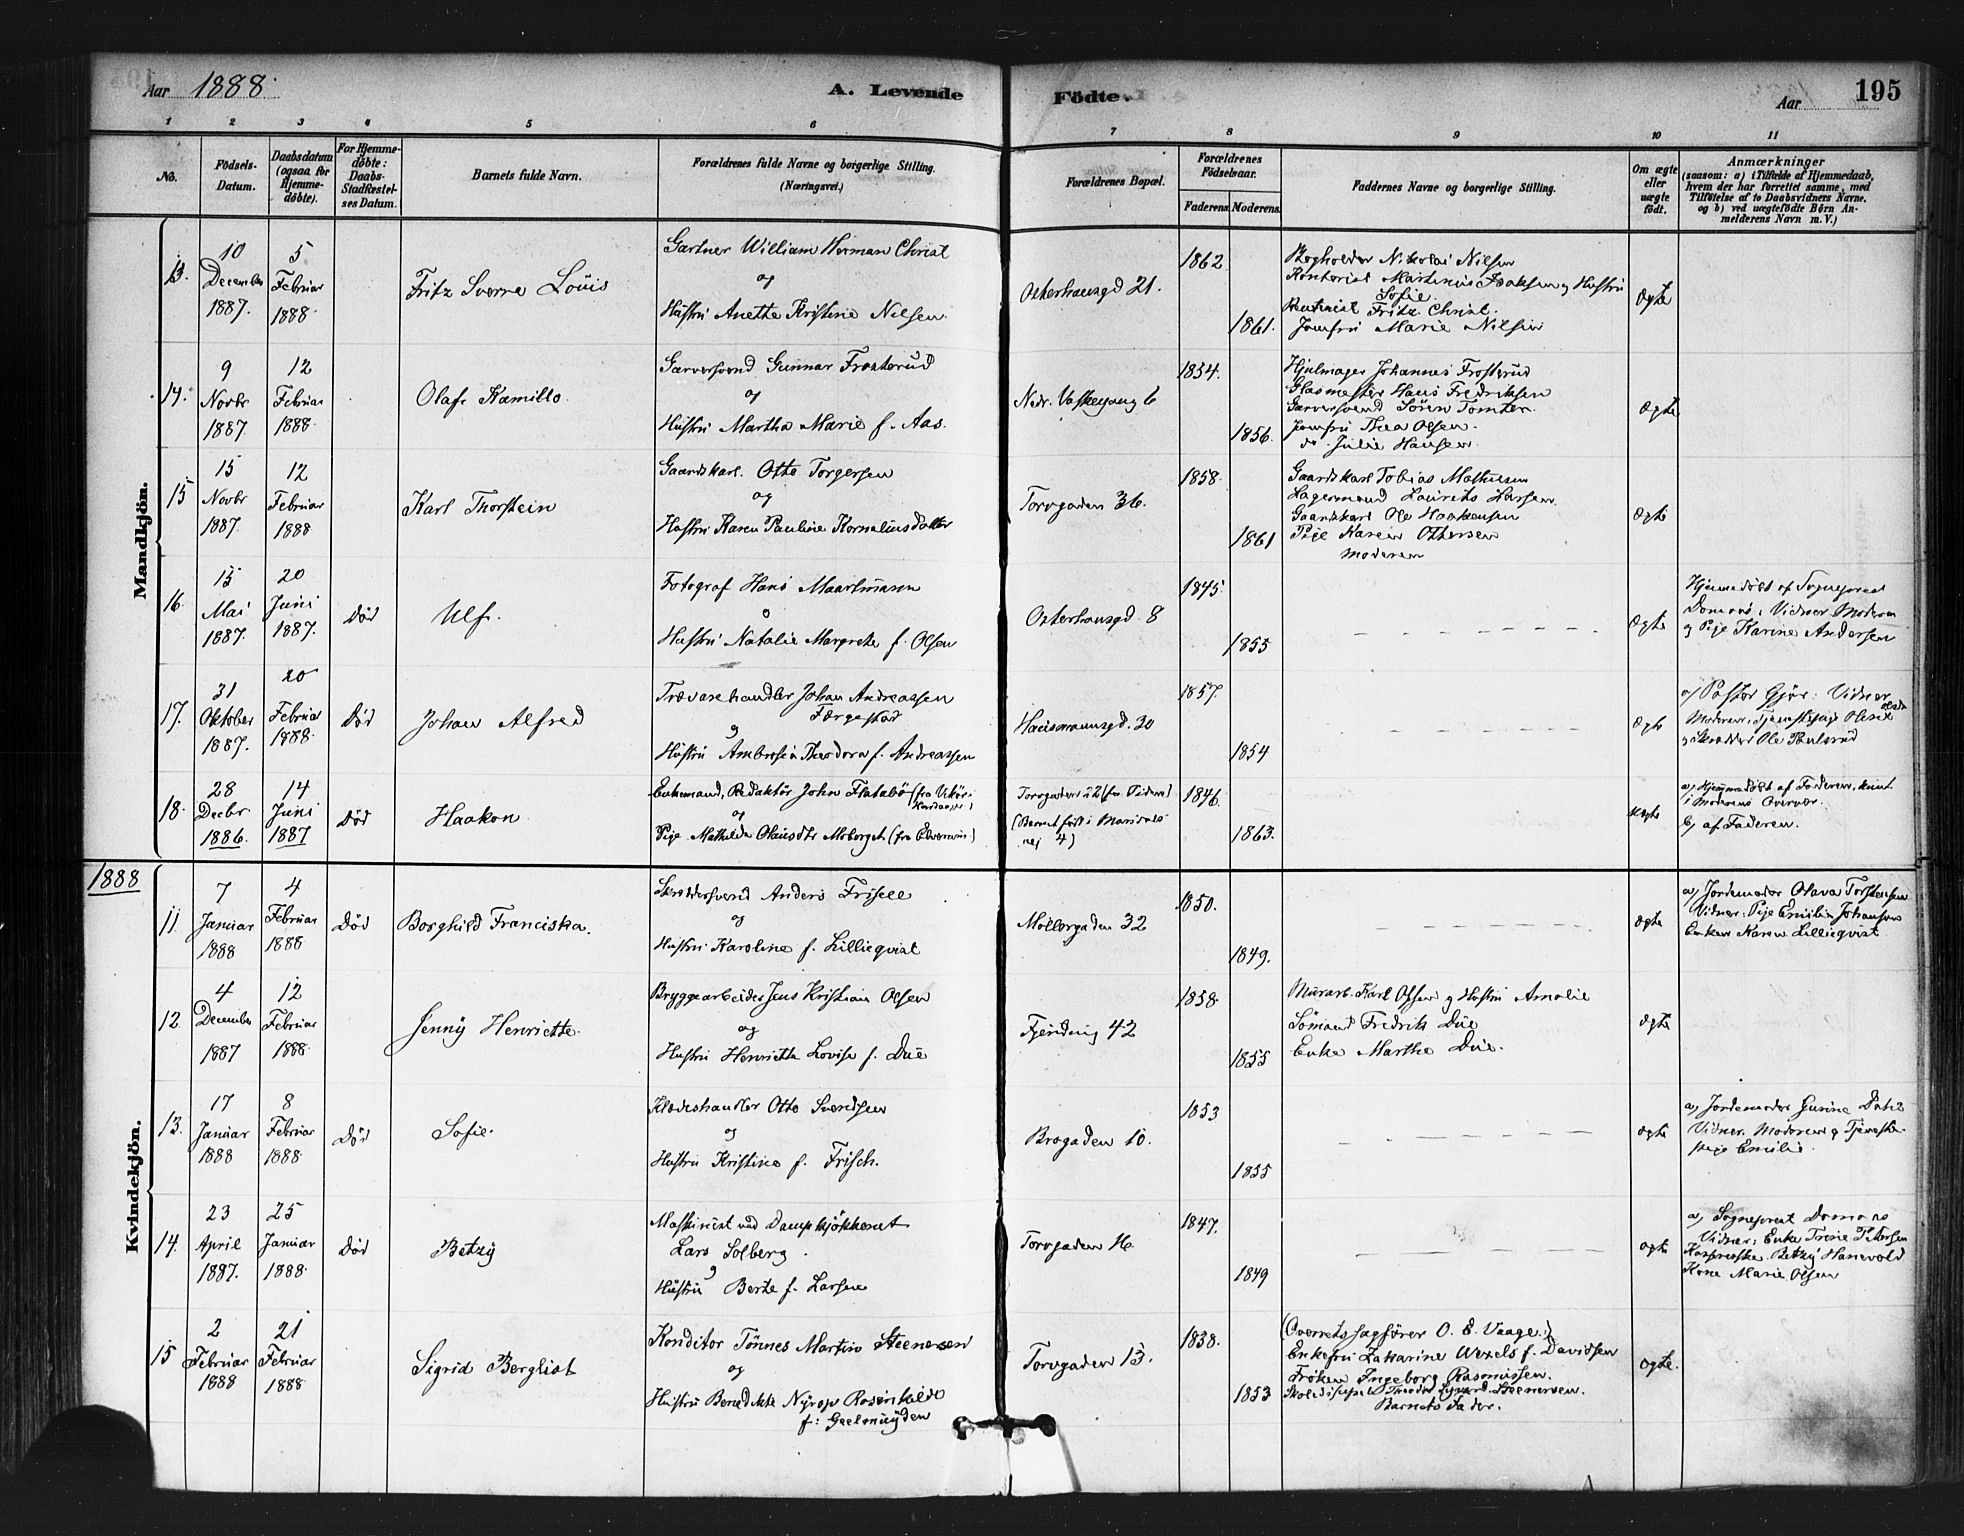 Aar 1888.
A. Levende Födte.
Aar
195
1 2 3 4 5 6 7 8 9 10 11
No.
Födsels-
Datum.
Daabsdatum
(ogsaa for
Hjemme-
döbte).
For Hjemme-
döbte:
Daabs-
Stadfæstel-
ses Datum.
Barnets fulde Navn.
Forældrenes fulde Navne og borgerlige Stilling.
(Næringsvei.)
Forældrenes Bopæl.
Forældrenes
Födselsaar.
Faderens. Moderens.
Faddernes Navne og borgerlige Stilling.
Om ægte
eller
uægte
födt.
Anmærkninger
(saasom: a) i Tilfælde af Hjemmedaab,
hvem der har forrettet samme, med
Tilföielse af to Daabsvidners Navne.
og b) ved uægtefödte Börn An-
melderens Navn m. V.)
Mandkjön.
13.
10
December
1887.
5
Februar
1888.
Fritz Sverre Louis
Gartner William Herman Christ
og
Hustru Anette Kristine Nilsen.
Osterhausgd 21.
1862
1861.
Bogholder Nikolai Nilsen
Kontorist Martinius Isaksen og Hustru
Sofie.
Rentenist Fritz Christ.
Jomfru Marie Nilsen
Ægte
14.
9
Novbr
1887.
12
Februar
1888.
Olaf Kamillo.
Garversvend Gunnar Frosterud
og
Hustru Martha Marie f. Aas.
Nedr. Vaskegang 6
1854.
1856.
Hjulmager Johannes Frosterud
Glasmester Hans Fredriksen
Garversvend Sören Tomter.
Jomfru Thea Olsen.
do. Julie Hansen.
Ægte
15
15
Novbr
1887.
12
Februar
1888
Karl Thorstein
Gaardskarl. Otto Torgersen
og
Hustru Karen Pauline Korneliusdatter
Torvgaden 36.
1858.
1861
Gaardskarl Tobias Mathisen
Lagermand Laurits Larsen
Gaardskarl Ole Haakensen
Pige Karen Ottersen
Moderen
Ægte
16.
15
Mai
1887.
20
Juni
1887.
Död
Ulf.
Fotograf Hans Maartmann
o
Hustru Natalie Margrete f. Olsen
Osterhausgd. 8
1845.
1855
Ægte
Hjemmedöbt af Sogneprest
Domaas; Vidner Moderen
og Pige Karine Andersen
17.
31
Oktober
1887.
20
Februar
1888.
Död
Johan Alfred
Trævarehandler Johan Andreassen
Færgestad
g
Hustru Ambrosia Theodora f. Andreassen
Hausmannsgd. 30
1857.
1854
Ægte
a) Pastor Gjör: Vidner
Moderen, Tjenestepige
og Skrædder Ole Paulsrud
18.
28
Decbr
1886.
14
Juni
1887
Död
Haakon.
Enkemand, Redaktör John Flatabö (fra Vikör i
Hardanger)
og
Pige Mathilde Olausdtr Moberget (fra Elverum)
(Barnet födt i Maridals-
vej 4)
1846.
1863.
uægte
a) Hjemmedöbt af Faderen, kun
i Moderens Overvær.
b) af Faderen.
1888
Kvindekjön.
11.
7
Januar
1888
4
Februar
1888
Död
Borghild Franciska.
Skræddersvend Anders Frisell
og
Hustru Karoline f. Lillieqvist
Möllergaden 32
1850.
1849.
Ægte
a) Jordemoder Olava Torstensen
Vidner: Pige Emilie Johansen
Enken Karen Lillieqvist
12.
4
December
1887
12
Februar
1888.
Jenny Henriette.
Bryggearbeider Jens Kristian Olsen
og
Hustru Henriette Lovise f. Due
Fjerding 42
1858.
1855
Murarb. Karl Olsen og Hustru Amalie
Sömand Fredrik Due
Enke Marthe Due.
Ægte
13.
17
Januar
1888
8
Februar
1888.
Död
Sofie.
Klædeshandler Otto Svendsen
og
Hustru Kristine f. Frisch.
Brogaden 10.
1853
1855
Ægte
a) Jordemoder Gusine Dahl
Vidner. Moderen og Tjeneste-
pige Emilie.
14.
23
April
1887.
25
Januar
1888.
Död
Betzy
Maskinist ved Dampkjökkenet
Lars Solberg.
g
Hustru Berte f. Larsen
Torvgaden 16.
1847.
1849
Ægte
a) Sogneprest Domaas
Vidner: Enke Trine Petersen
Betzy Hanevold
Kone Marie Olsen
15
2
Februar
1888
21
Februar
1888
Sigrid Bergliot
Konditor Tönnes Martin Steenersen
og
Hustru Benedikte Nyrop Rosenkilde
f: Geelmuyden
Torvgaden 13.
1838.
1853
(Overretssagförer O. E. Vaage.)
Enkefru Zakarine Wexels f. Davidsen
Fröken Ingeborg Rasmussen.
Skoledisipel Theodor Sigvard Steenersen.
Barnets Fader.
Ægte.